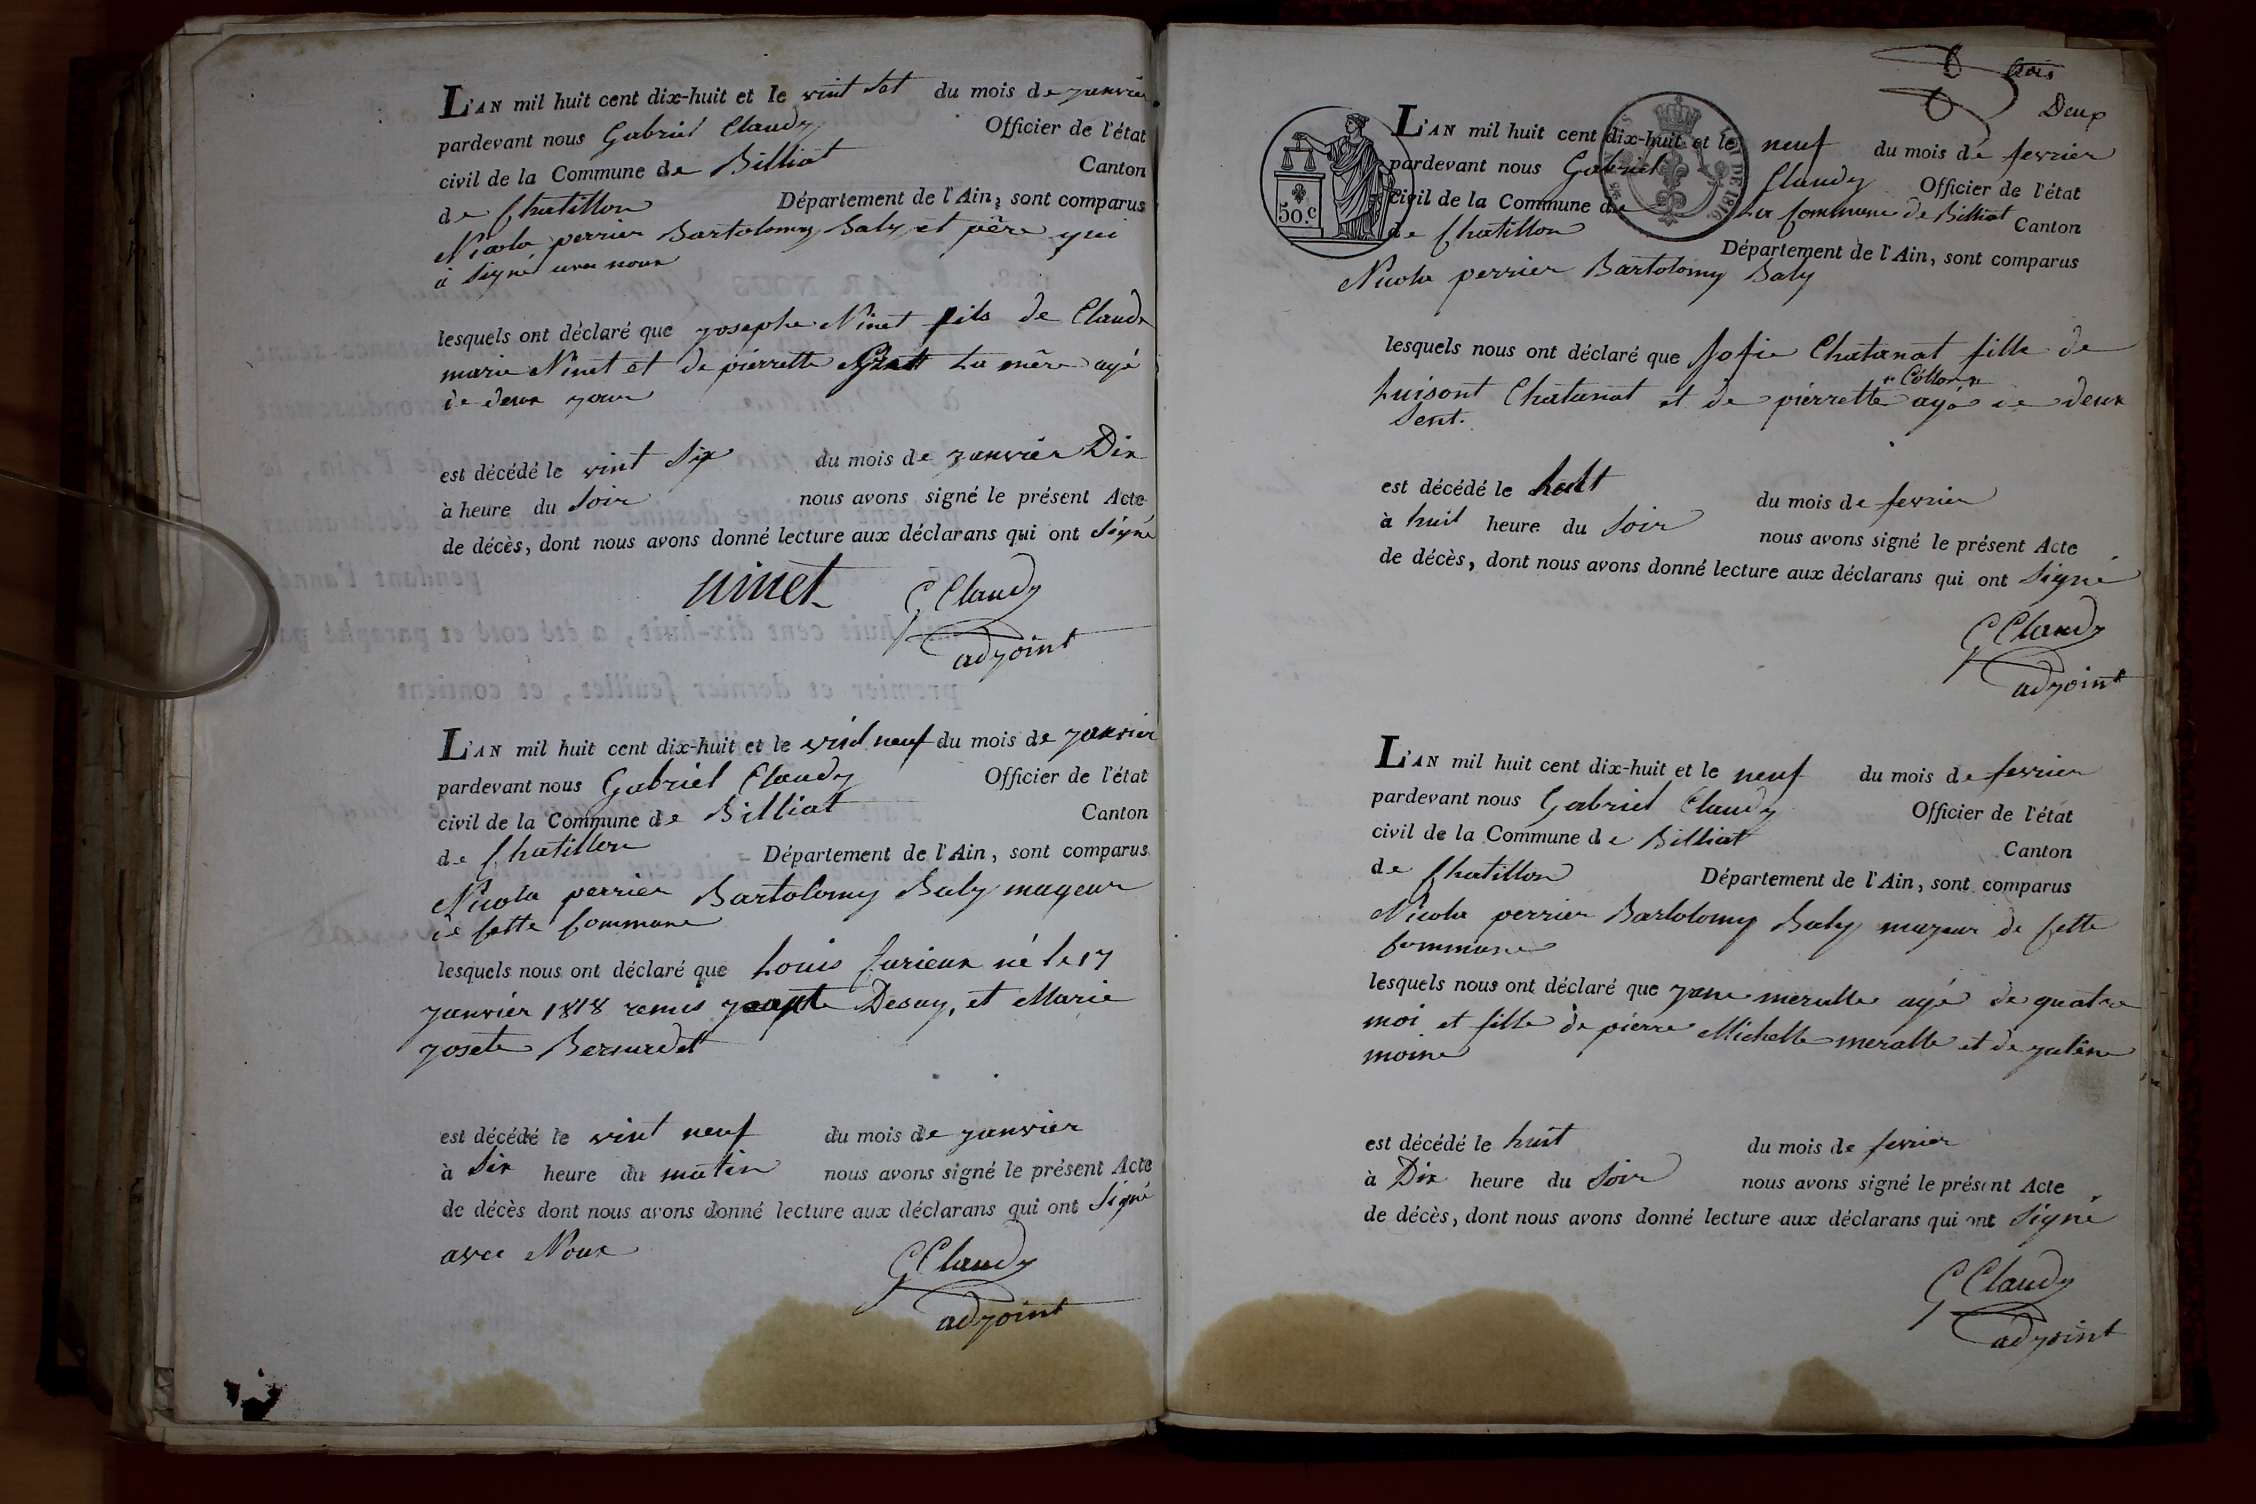 L'AN mil huit cent dix-huit et le vint set du mois de janvier
pardevant nous Gabriel Claudy Officier de l'état
civil de la Commune de Billiat Canton
de Chatillon Département de l'Ain, sont comparus
Nicola perrier Bartolomy Baly et père qui
à Signé avec noux
lesquels ont déclaré que josephe Ninet fils de Claude
marie Ninet et de pierrette La mère agé
de deux jour
est décédé le vint Six du mois de janvier Dix
à heure du Soir nous avons signé le présent Acte
de décès, dont nous avons donné lecture aux déclarans qui ont Signé
ninet G Claudy
adjoint
L'AN mil huit cent dix-huit et le vint neuf du mois de janvier
pardevant nous Gabriel Claudy Officier de l'état
civil de la Commune de Billiat Canton
de Chatillon Département de l'Ain, sont comparus
Nicola perrier Bartolomy Baly mageur
de Cette Commune
lesquels nous ont déclaré que Louis Curieux né le 17
janvier 1818 remis Desay, et Marie
josete Bernardet
est décédé le vint neuf du mois de janvier
à Six heure du matin nous avons signé le présent Acte
de décès dont nous avons donné lecture aux déclarans qui ont Signé
avec Noux G Claudy
adjoint
Deux
50.c
L'AN mil huit cent dix-huit et le neuf du mois de fevrier
pardevant nous Gabriel Claudy Officier de l'état
civil de la Commune de La Commune de Billiat Canton
de Chatillon Département de l'Ain, sont comparus
Nicola perrier Bartolomy Baly
lesquels nous ont déclaré que Sofie Chatanat fille de
Luisont Chatanat et de pierrette Cotton agé de deux
Sent.
est décédé le huit du mois de fevrier
à huit heure du Soir nous avons signé le présent Acte
de décès, dont nous avons donné lecture aux déclarans qui ont Signé
G Claudy
adjoint
L'AN mil huit cent dix-huit et le neuf du mois de fevrier
pardevant nous Gabriel Claudy Officier de l'état
civil de la Commune de Billiat Canton
de Chatillon Département de l'Ain, sont comparus
Nicola perrier Bartolomy Baly majeur de Cette
Commune
lesquels nous ont déclaré que jane meralle agé de quatre
moi et fille de pierre Michelle meralle et de juline
moine
est décédé le huit du mois de fevrier
à Dix heure du Soir nous avons signé le présent Acte
de décès, dont nous avons donné lecture aux déclarans qui ont Signé
G Claudy
adjoint